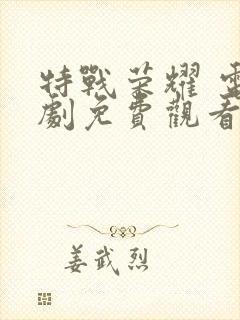 特戰荣耀 電
劇免費觀看
姜武烈